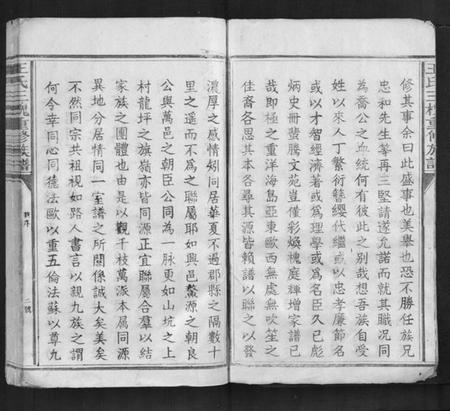 王氏三槐重修族譜
修其事余曰此盛事也美舉也恐不勝任族兄
忠和先生等再三堅請遂允諾而就其職況同
為喬公之血統何有彼此之別哉想吾族自受
姓以來人丁繁衍簪纓代繼或以忠孝廉節名
或以才智經濟著或為理學或為名臣久已彪
炳史冊蜚騰文苑豈僅彩煥槐庭輝增家譜已
哉即極之重洋海島亞東歐西無處無吹笙之
佳裔各思其本各尋其源皆賴譜以聯之以發
濃厚之感情矧同居華夏不過郡縣之隔數十
里之遙而不為之聯屬耶如興邑鰲源之朝良
公與萬邑之朝臣公同為一脉更如山坑之上
村龍坪之族嶺亦皆同源正宜聯屬合羣以結
家族之團體也由是以觀千枝萬派本屬同源
異地分居情同一室譜之所關係誠大矣美矣
不然同宗共祖視如路人書言以親九族之謂
何今幸同心同德法歐以重五倫法蘇以尊九
王氏三槐重修族譜
序
二號